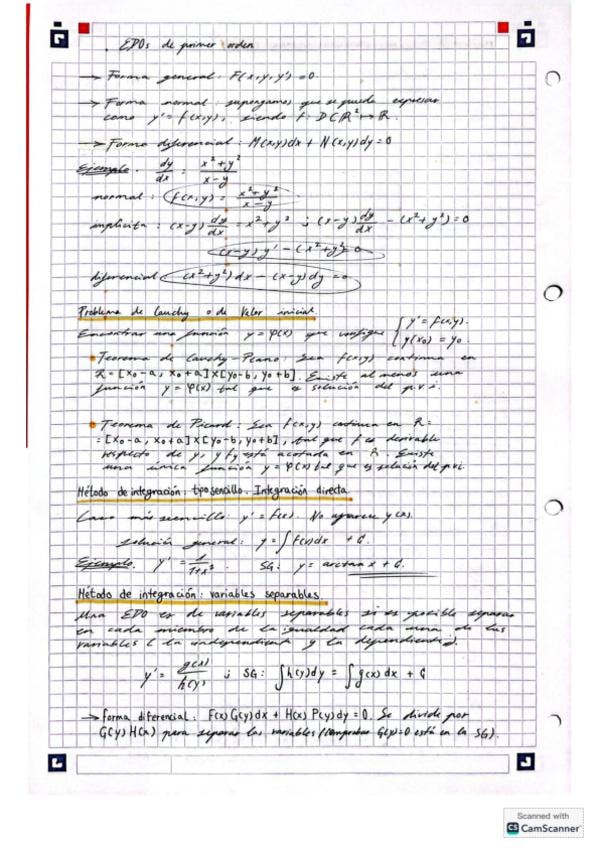 . EDOs de primer orden
→ Forma general: F(x,y,y') = 0
→ Forma normal: supongamos que se puede expresar
como y' = f(x,y), siendo f: D⊂R² ↦ R.
→ Forma diferencial: M(x,y)dx + N(x,y)dy = 0
Ejemplo. dy/dx = (x²+y²)/(x-y)
normal: f(x,y) = (x²+y²)/(x-y)
implícita: (x-y) dy/dx = x²+y² ; (x-y) dy/dx - (x²+y²) = 0
(x-y)y' - (x²+y²) = 0
diferencial: (x²+y²)dx - (x-y)dy = 0
Problema de Cauchy o de Valor inicial.
Encontrar una función y = φ(x) que verifique { y' = f(x,y). y(x₀) = y₀.
• Teorema de Cauchy-Peano: Sea f(x,y) continua en
R = [x₀-a, x₀+a]×[y₀-b, y₀+b]. Existe al menos una
función y = φ(x) tal que es solución del p.v.i.
• Teorema de Picard: Sea f(x,y) continua en R =
= [x₀-a, x₀+a]×[y₀-b, y₀+b], tal que f es derivable
respecto de y, y fy está acotada en R. Existe
una única función y = φ(x) tal que es solución del pvi.
Método de integración: tipo sencillo. Integración directa.
Caso más sencillo: y' = f(x). No aparece y(x).
solución general: y = ∫ f(x)dx + C.
Ejemplo. y' = 1/(1+x²). SG: y = arctan x + C.
Método de integración: variables separables.
Una EDO es de variables separables si es posible separar
en cada miembro de la igualdad cada una de las
variables (la independiente y la dependiente).
y' = g(x)/h(y) ; SG: ∫h(y)dy = ∫g(x)dx + C
→ forma diferencial: F(x)G(y)dx + H(x)P(y)dy = 0. Se divide por
G(y)H(x) para separar las variables (comprobar G(y)=0 está en la SG).
Scanned with
CS CamScanner